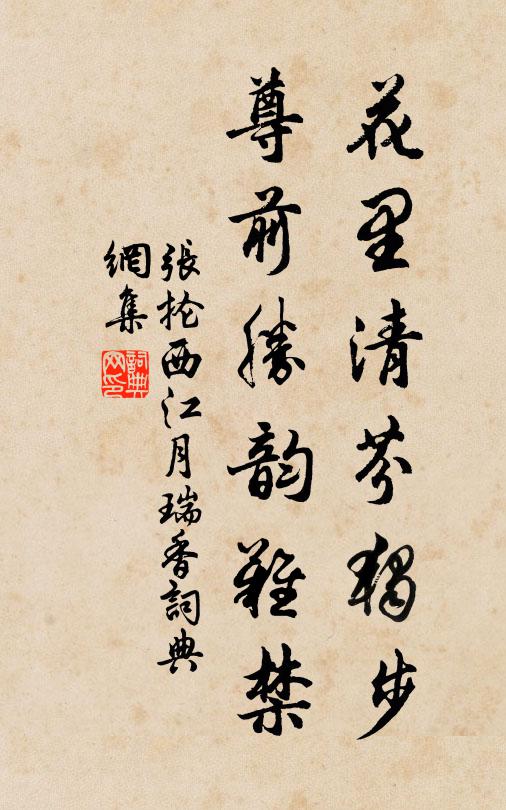 花里清芬獨步
尊前勝韵難禁
張掄西江月瑞香詞典
網集
詞典
网印